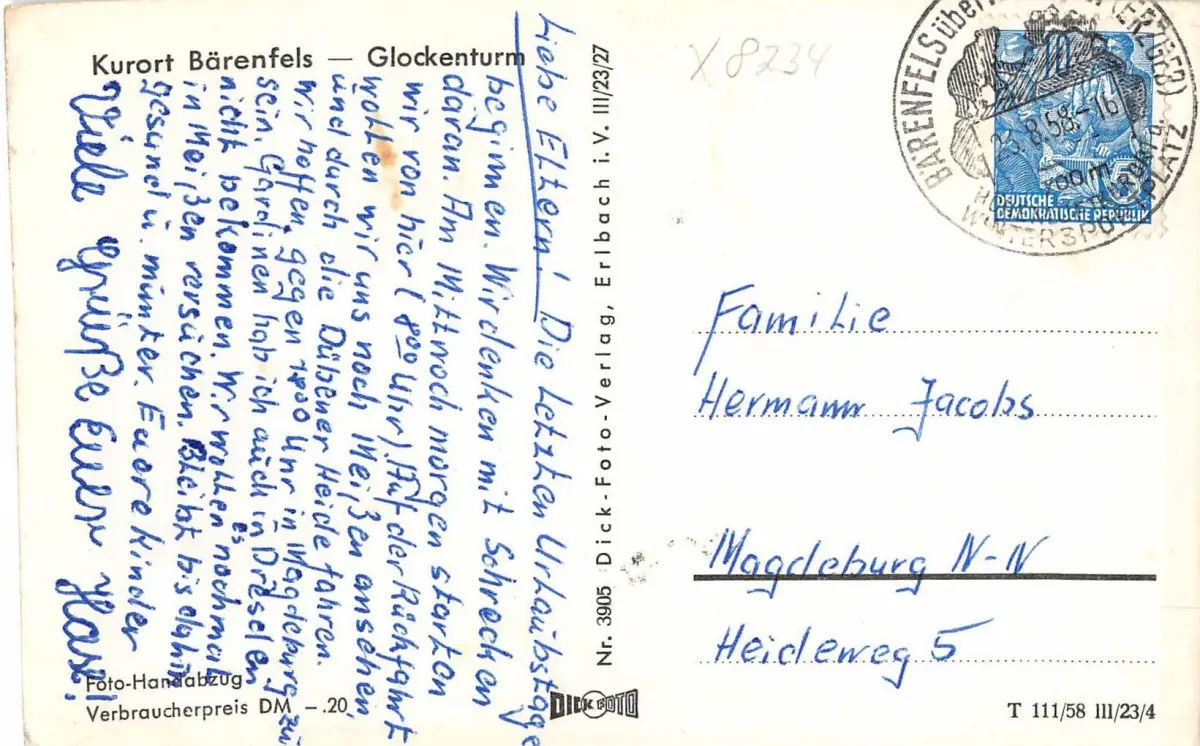 Kurort Bärenfels — Glockenturm
Liebe Eltern! Die letzten Urlaubstage
beginnen. Wir denken mit Schrecken
daran. Am Mittwoch morgen starten
wir von hier (800 Uhr). Auf der Rückfahrt
wollen wir uns noch Meißen ansehen,
und durch die Dübener Heide fahren.
Wir hoffen, gegen 1800 Uhr in Magdeburg zu
sein. Gardinen hab ich auch in Dresden
nicht bekommen. Wir wollen es nochmal
in Meißen versuchen. Bleibt bis dahin
gesund u. munter. Euere Kinder
Viele Grüße Euer
Foto-Handabzug
Verbraucherpreis DM –.20
Nr. 3905 Dick-Foto-Verlag, Erlbach i. V. III/23/27
DICK FOTO
X 8234
BÄRENFELS über (ERZGEB)
23.8.58.-16
WINTERSPORTPLATZ
10
DEUTSCHE
DEMOKRATISCHE REPUBLIK
Familie
Hermann Jacobs
Magdeburg N-N
Heideweg 5
T 111/58 III/23/4